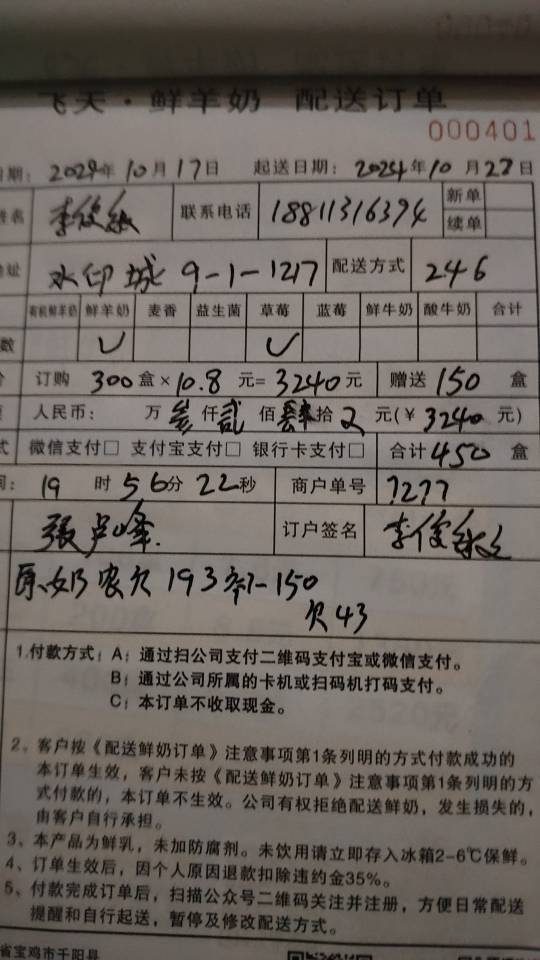 飞天·鲜羊奶 配送订单
000401
期: 2024年10月17日 起送日期: 2024年10月27日
姓名 李俊 联系电话 18811316394 新单
续单
地址 水印城 9-1-1217 配送方式 246
有机鲜羊奶 鲜羊奶 麦香 益生菌 草莓 蓝莓 鲜牛奶 酸牛奶 合计
数 ✓ ✓
订购 300盒×10.8元=3240元 赠送 150 盒
人民币: 万叁仟贰佰肆拾 元(¥3240元)
式 微信支付□ 支付宝支付□ 银行卡支付□ 合计450盒
间: 19时56分22秒 商户单号 7277
张卢峰 订户签名 李俊
原奶农欠193 -150
欠43
1.付款方式: A; 通过扫公司支付二维码支付宝或微信支付。
B; 通过公司所属的卡机或扫码机打码支付。
C; 本订单不收取现金。
2、客户按《配送鲜奶订单》注意事项第1条列明的方式付款成功的
本订单生效，客户未按《配送鲜奶订单》注意事项第1条列明的方
式付款的，本订单不生效。公司有权拒绝配送鲜奶，发生损失的，
由客户自行承担。
3、本产品为鲜乳，未加防腐剂。未饮用请立即存入冰箱2-6℃保鲜。
4、订单生效后，因个人原因退款扣除违约金35%。
5、付款完成订单后，扫描公众号二维码关注并注册，方便日常配送
提醒和自行起送，暂停及修改配送方式。
省宝鸡市千阳县